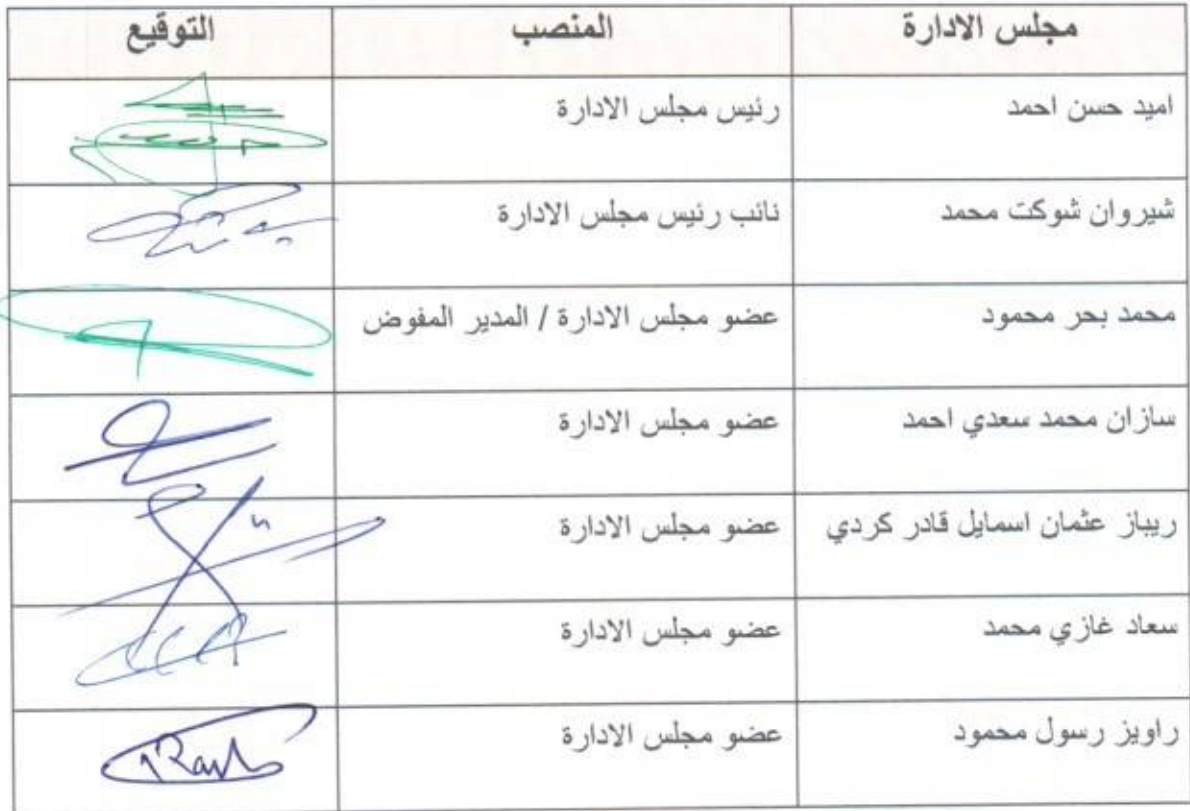 مجلس الادارة المنصب التوقيع
اميد حسن احمد رئيس مجلس الادارة
شيروان شوكت محمد نائب رئيس مجلس الادارة
محمد بحر محمود عضو مجلس الادارة / المدير المفوض
سازان محمد سعدي احمد عضو مجلس الادارة
ريباز عثمان اسمايل قادر كردي عضو مجلس الادارة
سعاد غازي محمد عضو مجلس الادارة
راويز رسول محمود عضو مجلس الادارة